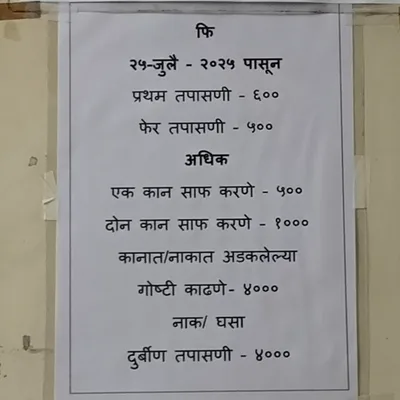 फि
२५-जुलै - २०२५ पासून
प्रथम तपासणी - ६००
फेर तपासणी - ५००
अधिक
एक कान साफ करणे - ५००
दोन कान साफ करणे - १०००
कानात/नाकात अडकलेल्या
गोष्टी काढणे- ४०००
नाक/ घसा
दुर्बीण तपासणी - ४०००